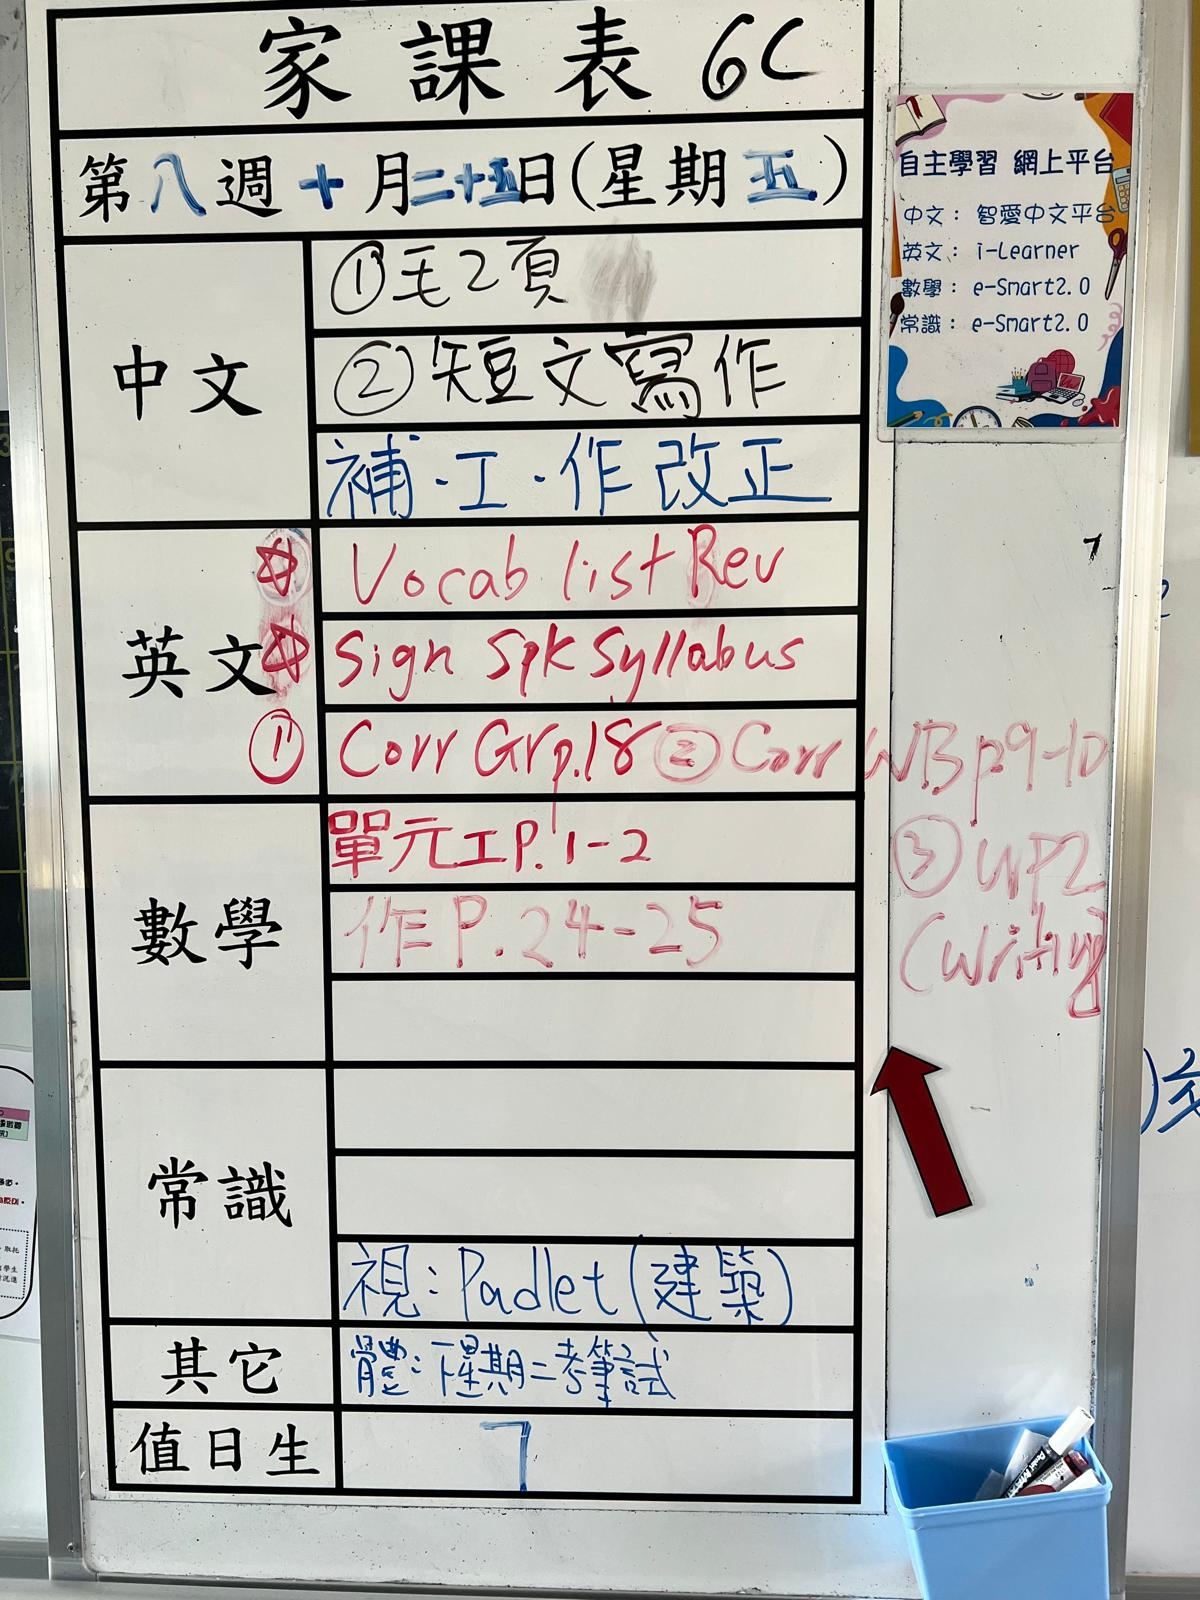 家課表 6C
第八週十月二十五日(星期五)
中文
①毛2頁
②短文寫作
補.工.作改正
英文
Vocab list Rev
Sign Spk Syllabus
① Corr Gr p.18 ② Corr WB p9-10
③ WP2
(Writing)
數學
單元工P.1-2
作P.24-25
常識
視:Padlet(建築)
其它
體:下星期二考筆試
值日生
7
自主學習 網上平台
中文: 智愛中文平台
英文: i-Learner
數學: e-Smart2.0
常識: e-Smart2.0